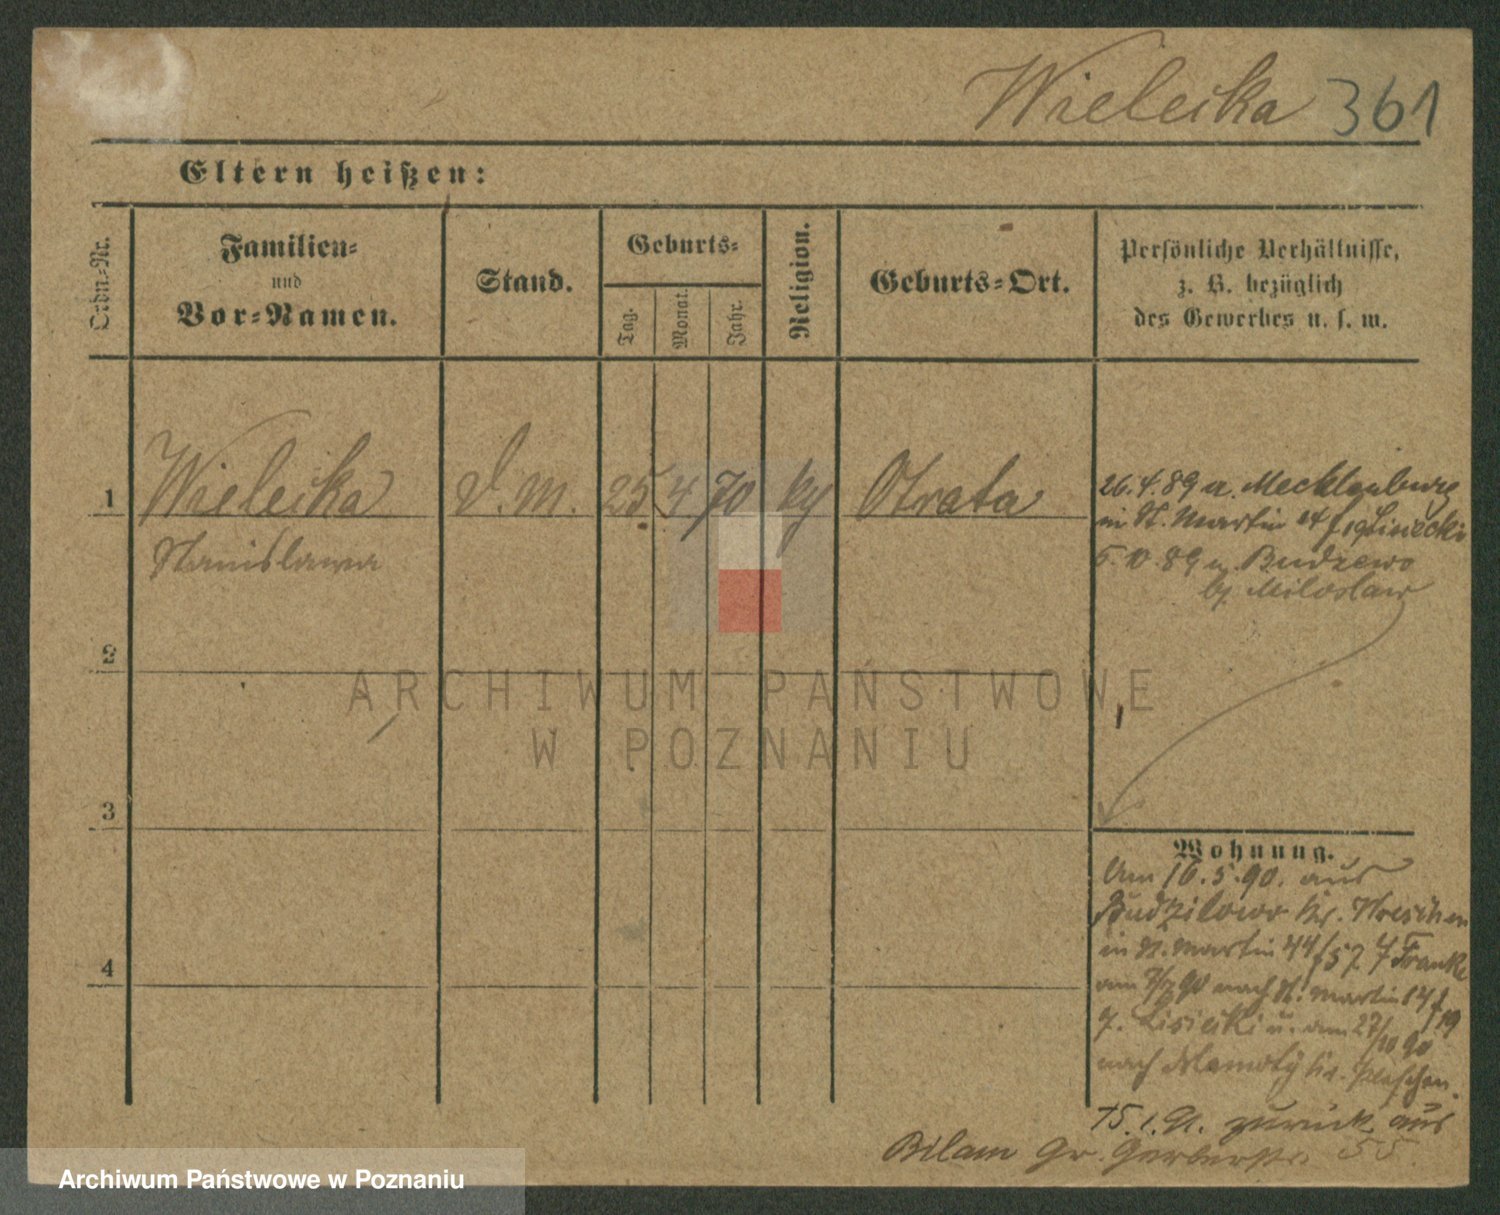 Wieleika 361
Eltern heißen:
Ordn.-Nr.
Familien-
und
Vor-Namen.
Stand.
Geburts-
Tag.
Monat.
Jahr.
Religion.
Geburts-Ort.
Persönliche Verhältnisse,
z. B. bezüglich
des Gewerbes u. s. w.
1 Wieleika D. M. 25 4 70 ky Otrata
Stanislawa
26.4.89 n. Mecklenburg
in St. Martin
5.10.89 n. Budzewo
by Miloslaw
2
ARCHIWUM PAŃSTWOWE
W POZNANIU
3
Wohnung.
Am 16.5.90. aus
Budzilowo Kr. Wreschen
in St. Martin 44/57. Franke
am nach St. Martin 14/19
z. Lisiecki u. am 27/10 90
nach Kr. Pleschen.
4
15.1.91. zurück aus
Gr. Gerberstr. 55
Archiwum Państwowe w Poznaniu